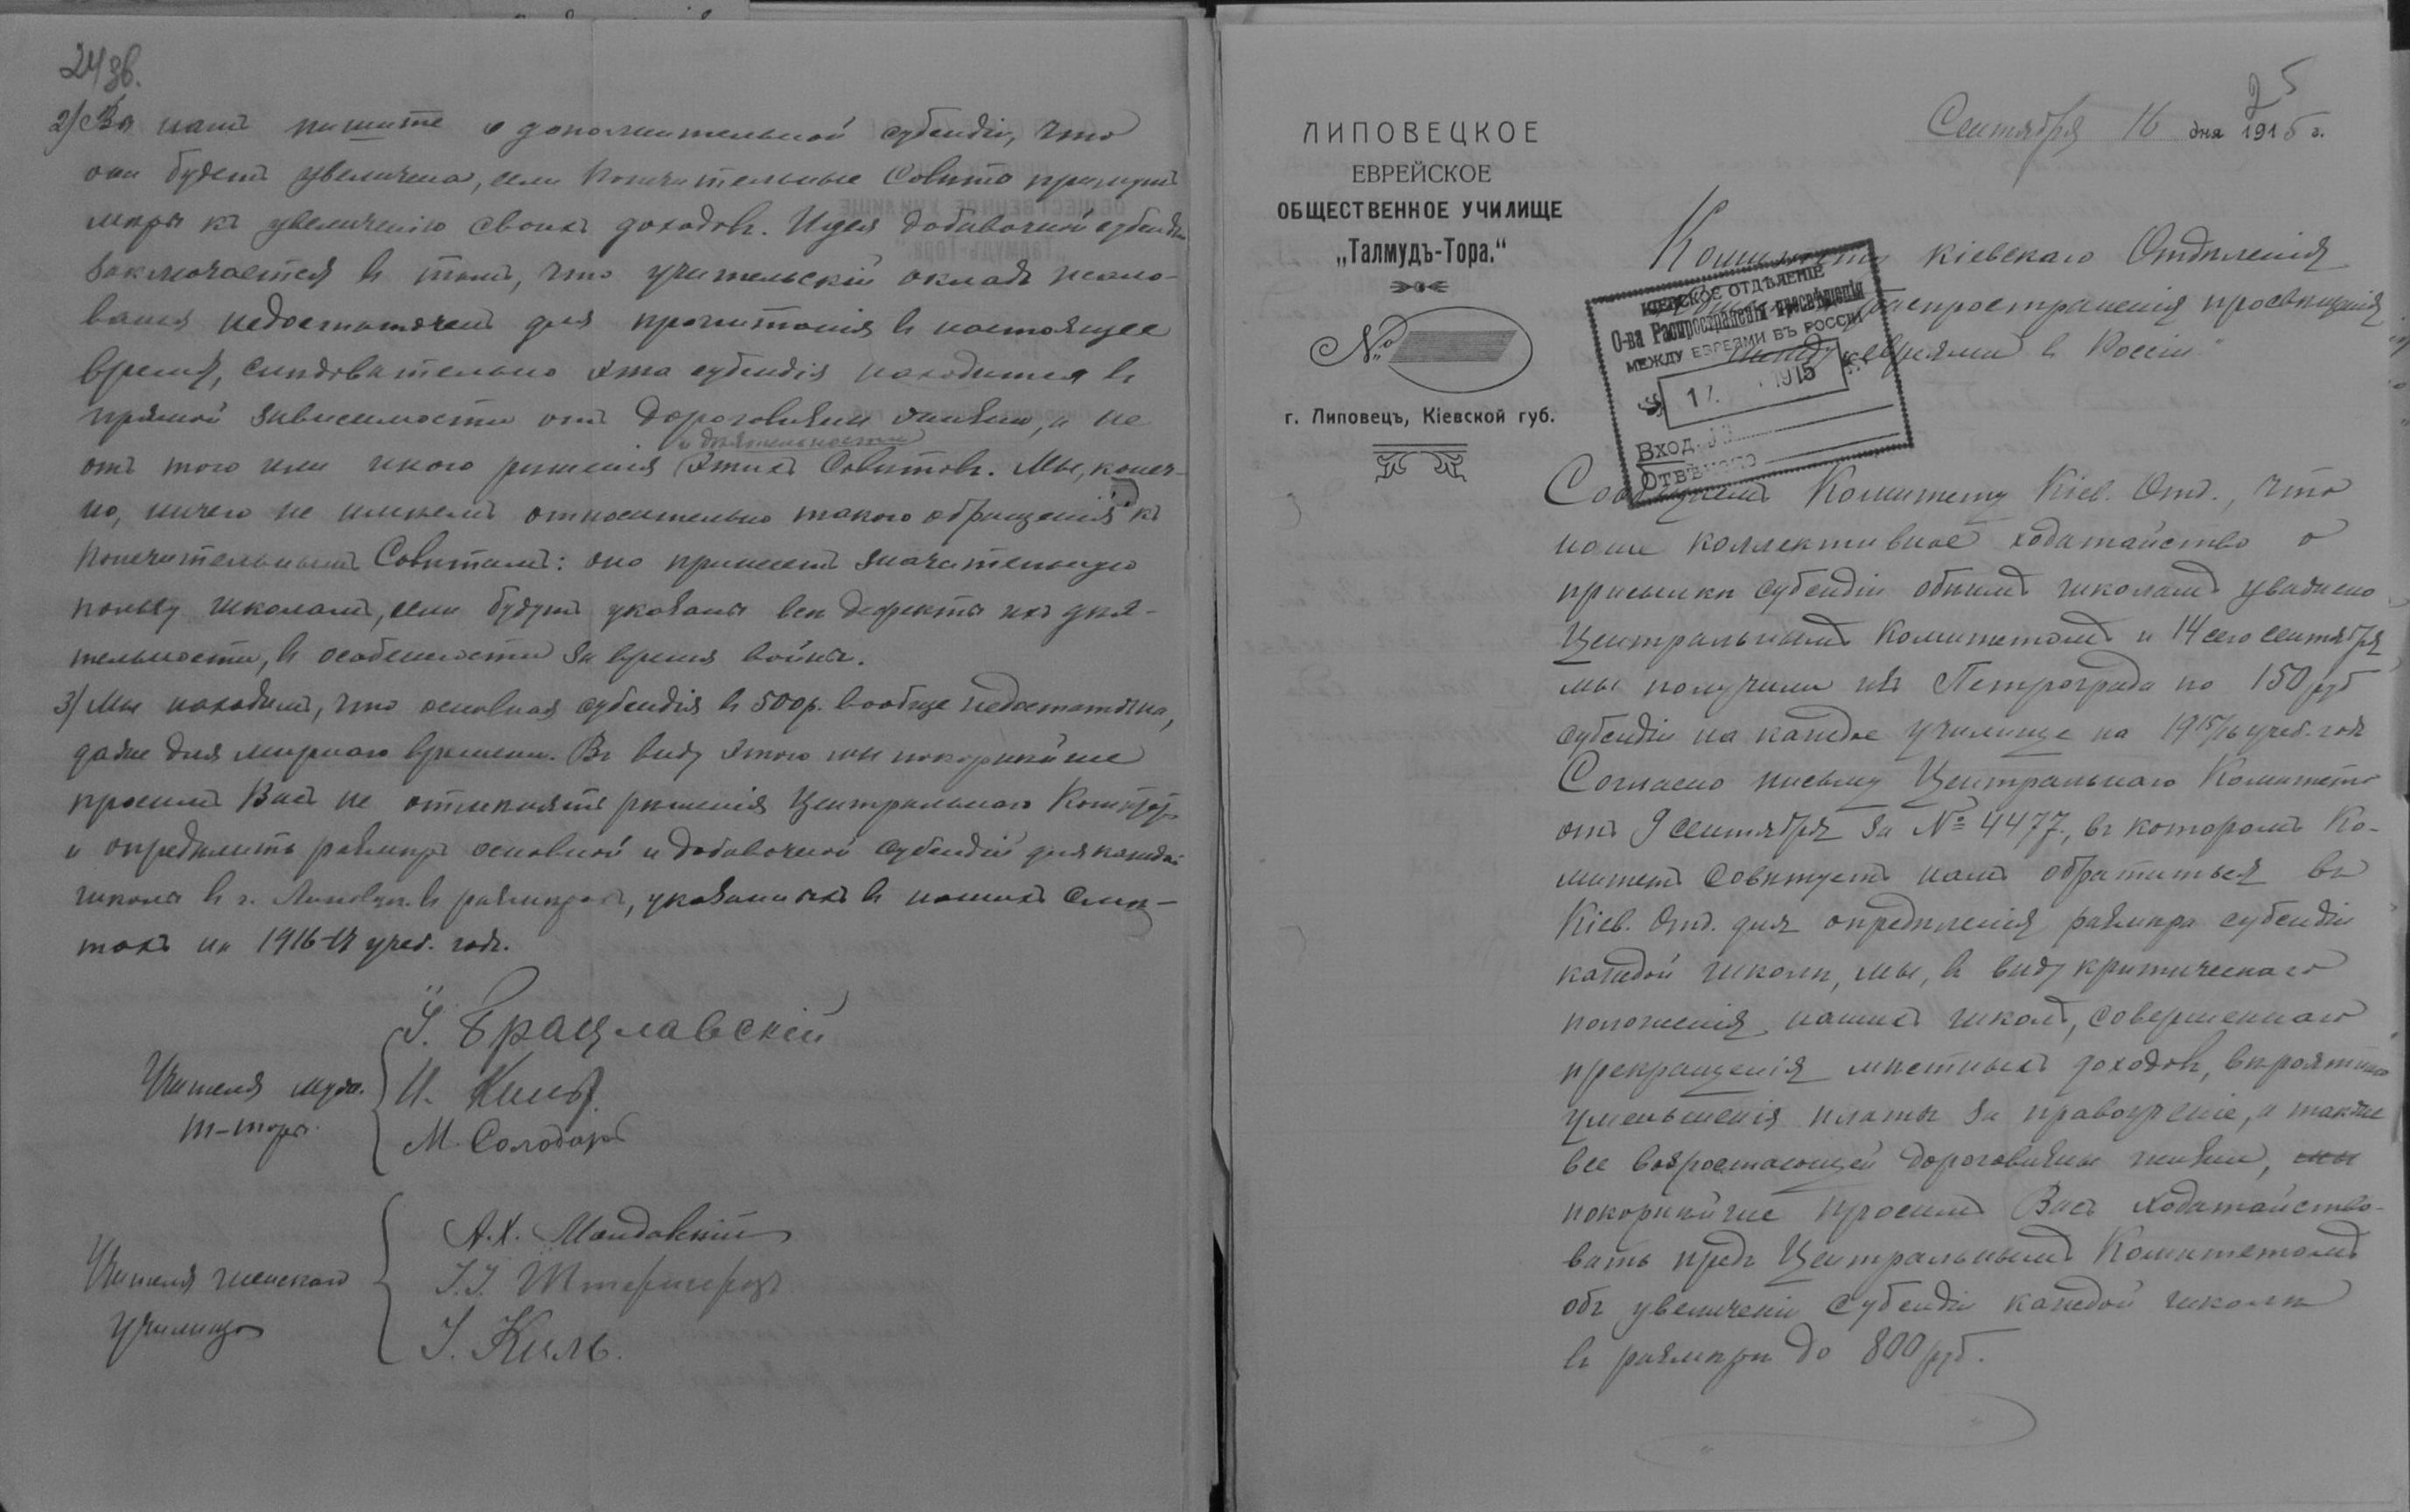 24 зв.
2) Вы намъ пишите о дополнительной субсидіи, что
она будетъ увеличена, если Попечительные Совѣты примутъ
мѣры къ увеличенію своихъ доходовъ. Идея добавочной субсидіи
заключается въ томъ, что учительскій окладъ
недостаточенъ для пропитанія въ настоящее
время, слѣдовательно эта субсидія находится въ
прямой зависимости отъ дороговизны жизни, а не
и дѣятельности
отъ того или иного рѣшенія этихъ Совѣтовъ. Мы, конеч-
но, ничего не имѣемъ относительно такого обращенія къ
Попечительнымъ Совѣтамъ: оно принесетъ значительную
пользу школамъ, если будутъ указаны всѣ дефекты ихъ дѣя-
тельности, въ особенности за время войны.
3) Мы находимъ, что основная субсидія въ 500 р. вообще недостаточна,
даже для мирнаго времени. Въ виду этого мы покорнѣйше
просимъ Васъ не отклонять рѣшенія Центральнаго Комитета
и опредѣлить размѣръ основной и добавочной субсидій для каждой
школы въ г. Липовцѣ въ размѣрахъ, указанныхъ въ нашихъ смѣ-
тахъ на 1916-17 учеб. годъ.
Учителя муж.
т-торы
І. Брацлавскій
И. Киль
М. Солодарь
Учителя женскаго
училища
А. Х.
І. І.
І. Киль.
25
Сентября 16 дня 1915 г.
ЛИПОВЕЦКОЕ
ЕВРЕЙСКОЕ
ОБЩЕСТВЕННОЕ УЧИЛИЩЕ
„Талмудъ-Тора."
№
г. Липовецъ, Кіевской губ.
КІЕВСКОЕ ОТДѢЛЕНІЕ
О-ва Распространенія просвѣщенія
МЕЖДУ ЕВРЕЯМИ ВЪ РОССІИ
17 1915
Вход. №
Отвѣчено
Комитету Кіевскаго Отдѣленія
распространенія просвѣщенія
между евреями въ Россіи"
Сообщаемъ Комитету Кіев. Отд., что
наше коллективное ходатайство о
присылкѣ субсидіи обѣимъ школамъ уважено
Центральнымъ Комитетомъ и 14 сего сентября
мы получили изъ Петрограда по 150 руб
субсидіи на каждое училище на 1915/16 учеб. годъ
Согласно письму Центральнаго Комитета
отъ 9 сентября за № 4477, въ которомъ Ко-
митетъ совѣтуетъ намъ обратиться въ
Кіев. Отд. для опредѣленія размѣра субсидіи
каждой школѣ, мы, въ виду критическаго
положенія нашихъ школъ, совершеннаго
прекращенія мѣстныхъ доходовъ, вѣроятнаго
уменьшенія платы за правоученіе, а также
все возростающей дороговизны жизни, мы
покорнѣйше просимъ Васъ ходатайство-
вать предъ Центральнымъ Комитетомъ
объ увеличеніи субсидіи каждой школѣ
въ размѣрѣ до 800 руб.